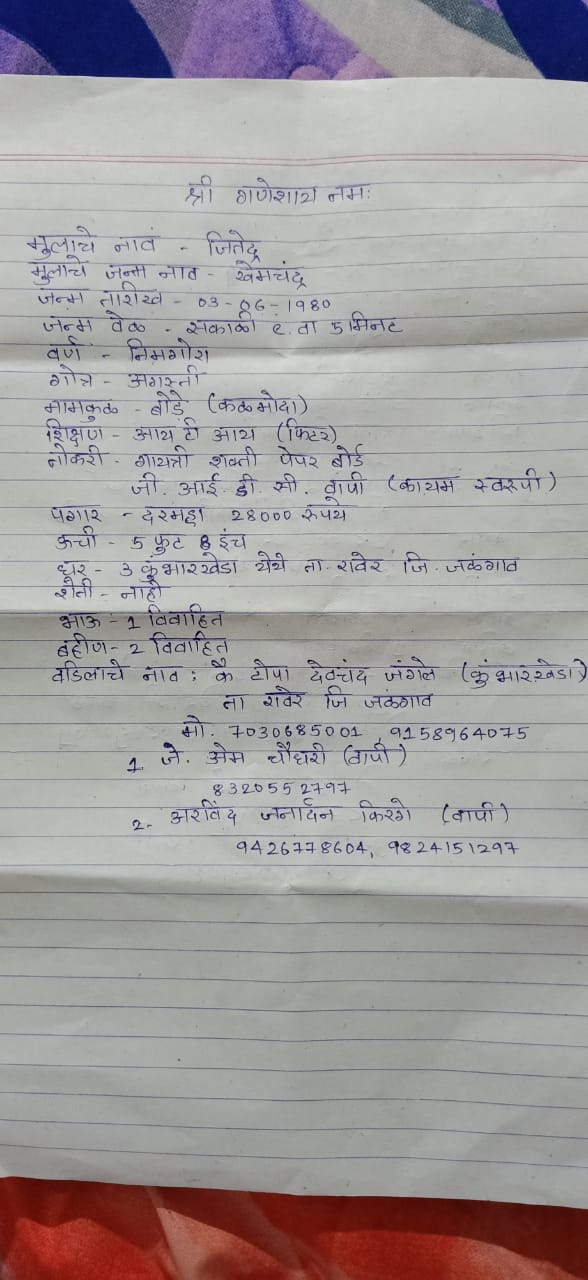 श्री गणेशाय नमः
मुलाचे नाव - जितेंद्र
मुलाचे जन्म नाव - खेमचंद्र
जन्म तारीख - 03-06-1980
जन्म वेळ - सकाळी ९ वा 5 मिनट
वर्ण - निमगोरा
गोत्र - अगस्ती
मामकुळ - बोंडे (कळमोदा)
शिक्षण - आय टी आय (फिटर)
नोकरी - गायत्री शक्ती पेपर बोर्ड
जी. आई. डी. सी. वापी (कायम स्वरूपी)
पगार - दरमहा 28000 रुपये
ऊंची - 5 फुट 8 इंच
घर - 3 कुंभारखेडा येथे ता. रावेर जि. जळगाव
शेती - नाही
भाऊ - 1 विवाहित
बहीण - 2 विवाहित
वडिलाचे नाव : कै टोपा देवचंद जंगले (कुंभारखेडा)
ता रावेर जि जळगाव
मो. 7030685001, 9158964075
1. जे. ओम चौधरी (वापी)
8320552797
2- अरविंद जनार्दन किरंगे (वापी)
9426778604, 9824151297